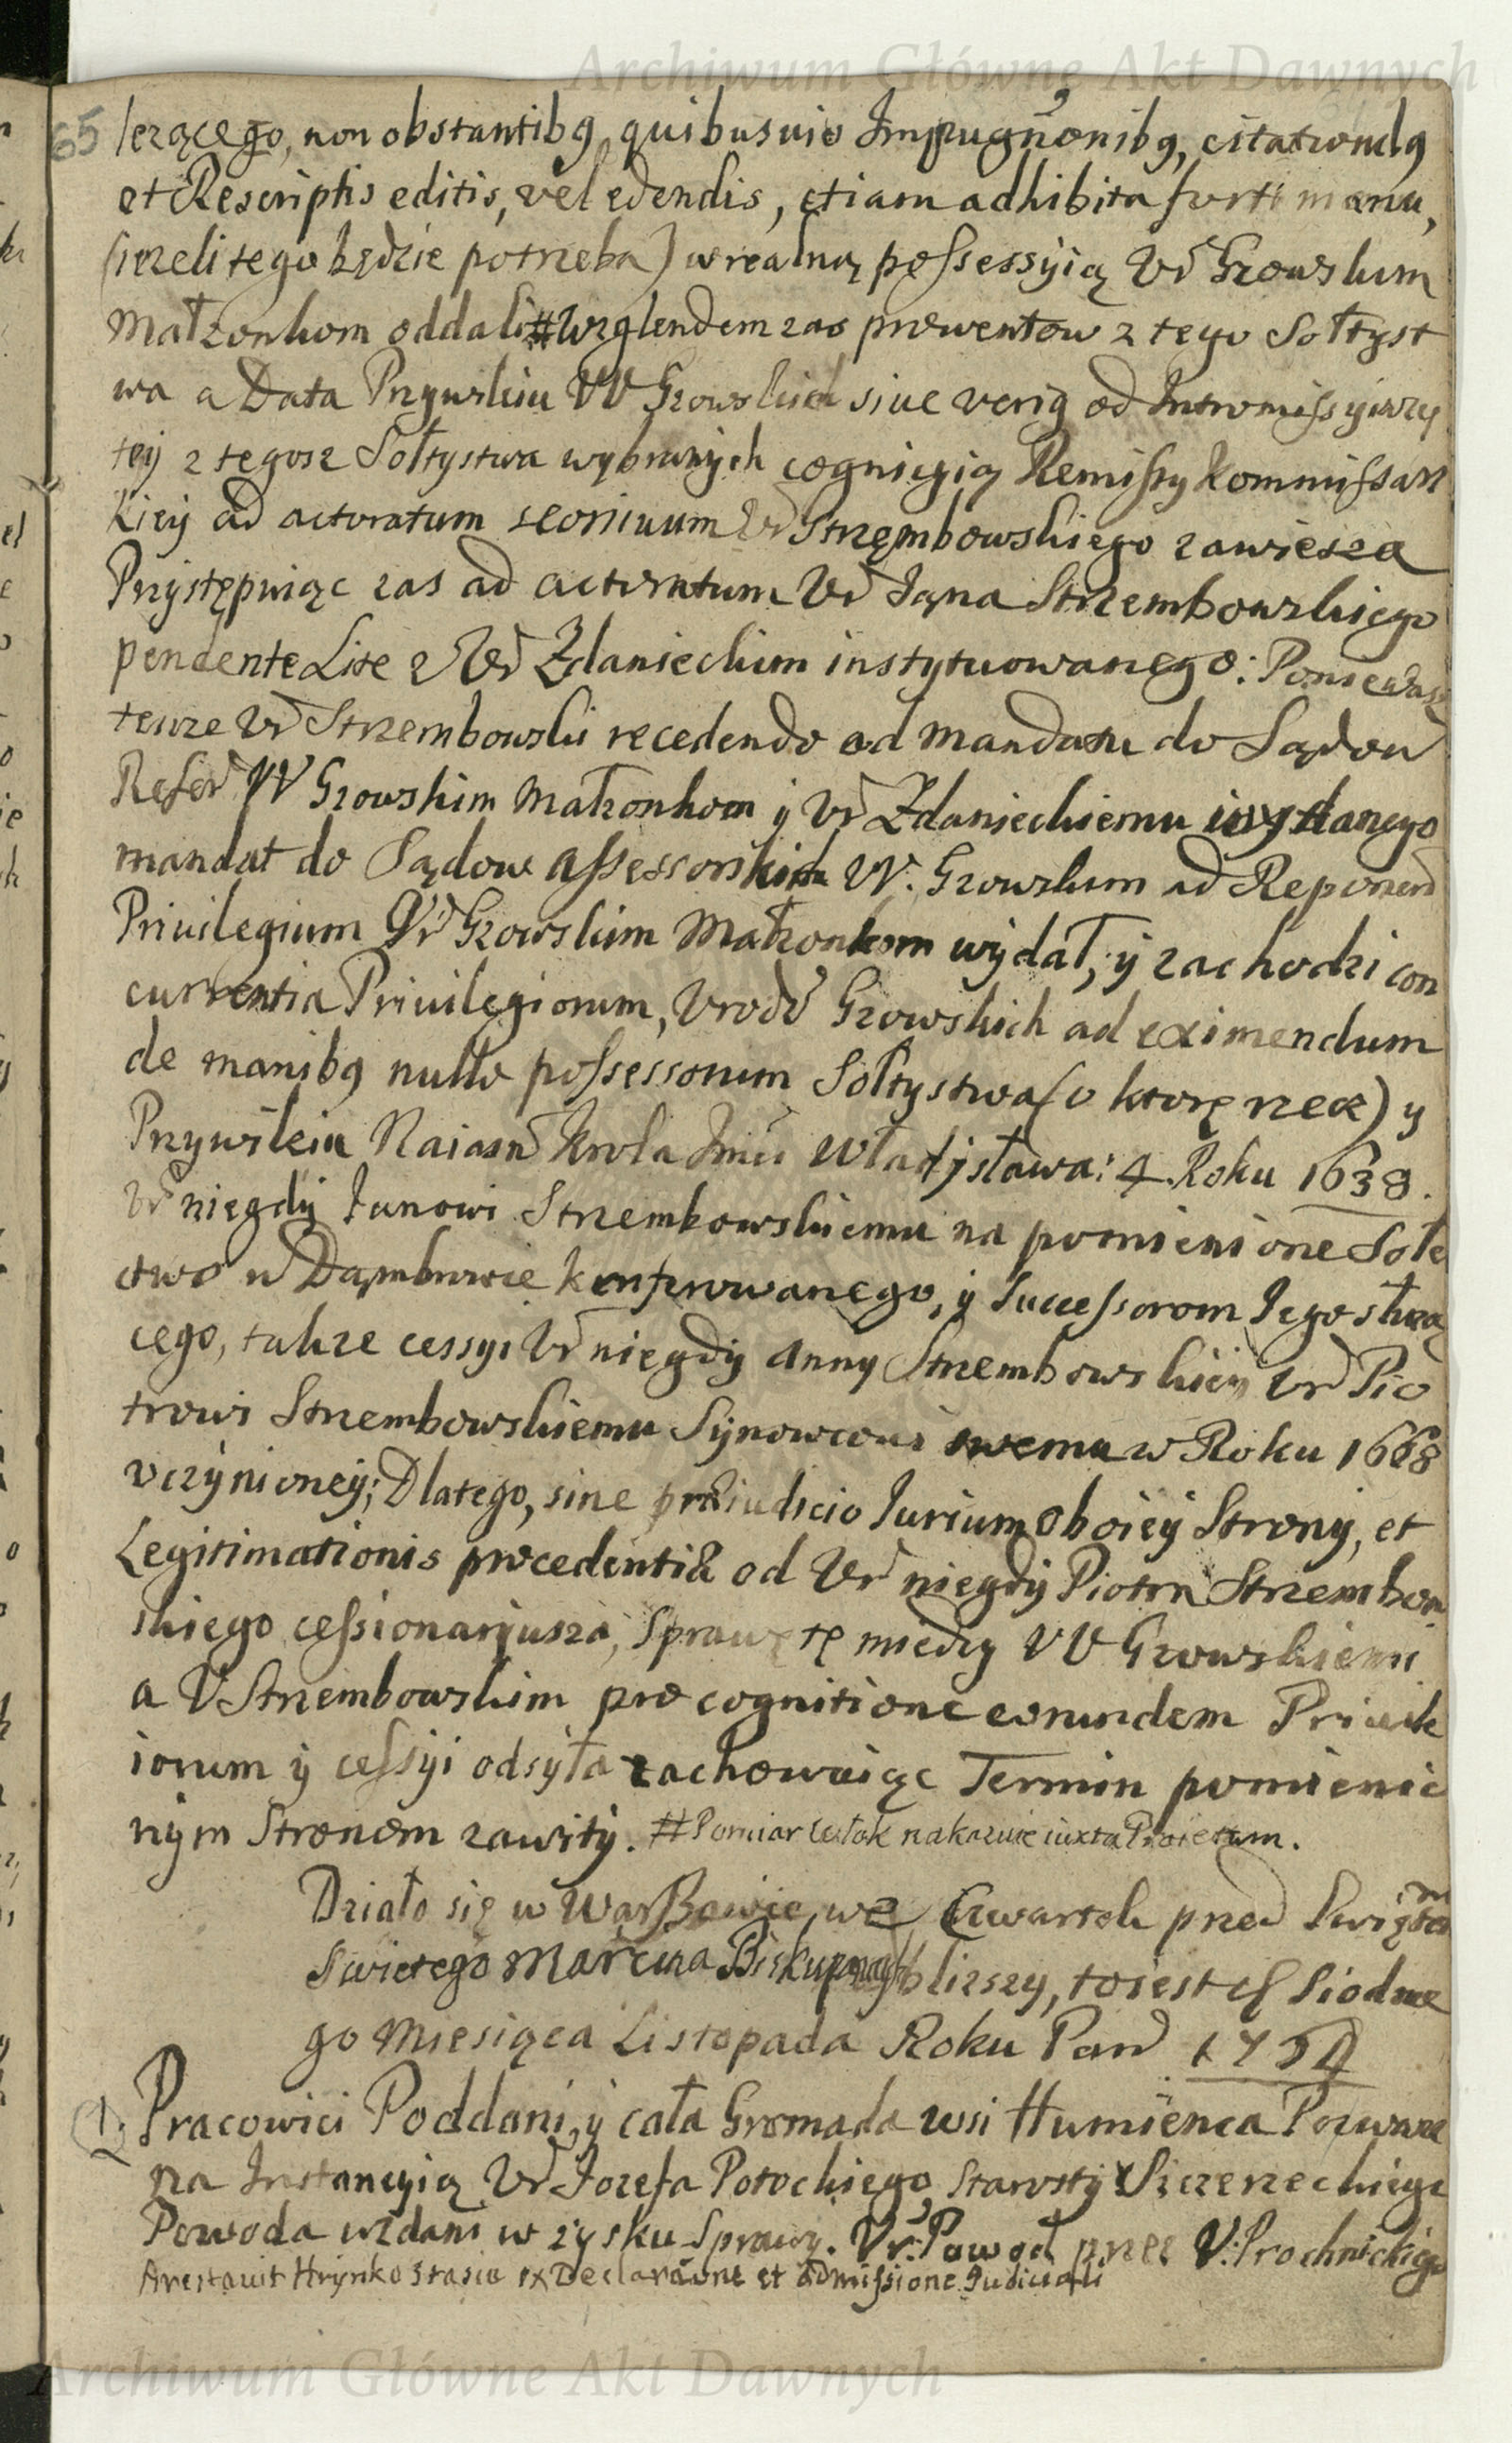 Archiwum Główne Akt Dawnych
65
lezącego, non obstantibq quibusuis Impugnonibq, citationibq
et Rescriptis editis, vel edendis, etiam adhibita forti manu,
(iezeli tego będzie potrzeba) w realną possessyią Vr Gzowskim
Małzonkom oddali # Wzglendem zas prowentow z tego Sołtyst
wa a Data Przywileiu VV Gzowskich siue verig od Intromissyi wzy
tey z tegosz Sołtystwa wybranych cognicyią Remissy Kommissarz
kiey ad actoratum seorsiuum Vr Strzembowskiego zawiesza
Przystępuiąc zas ad actoratum Vr Jana Strzembowskiego
pendente Lite z Vr Zdanieckim instytuowanego: Poniewasz
tenze Vr Strzembowski recedendo od mandatu do Sądow
Refer VV Gzowskim Małzonkom y Vr Zdanieckiemu wydanego
mandat do Sądow Assessorskich VV. Gzowskim ad Reponend
Privilegium Vr Gzowskim Małzonkom wydał, y zachodzi con
currentia Privilegiorum, Vrodz Gzowskich ad eximendum
de manibq nullo possessorum Sołtystwa (o ktore rzecz) y
Przywileiu Naiasn Krola Jmci Władysława: 4. Roku 1638.
Vr niegdy Janowi Strzembowskiemu na pomienione Sołe
ctwo w Dąmbrowie konferowanego, y Successorom Jego słuzą
cego, takze cessyi Vr niegdy Anny Strzembowskiey Vr Pio
trowi Strzembowskiemu Synowcowi swemu w Roku 1668
vczynioney; Dlatego, sine præiudicio Jurium oboiey Strony, et
Legitimationis procedentiæ od Vr niegdy Piotra Strzembow
skiego cessionarjusza, Sprawę tę miedzy VV Gzowskiemi
a V Strzembowskim pro cognitione eorundem Privile
iorum y cessyi odsyła zachowuiąc Termin pomienio
nym Stronom zawity. # Pomiar włok nakazuie iuxta Proiectum.
Działo się w Warszawie we Czwartek przed Swiętem
Swietego Marcina Biskupa naybliszszy, to iest d Siodme
go Miesiąca Listopada Roku Pan 1754
1. Pracowici Poddani, y cała Gromada wsi Humienca Pozwana
na Instancyią Vr Jozefa Potockiego Starosty Szczerzeckiego
Powoda wzdani w zysku Sprawy. Vr: Powod przez V: Prochnickiego
Arestauit Hrynko Stasio ex Declaratione et admissione Judiciali
Archiwum Główne Akt Dawnych